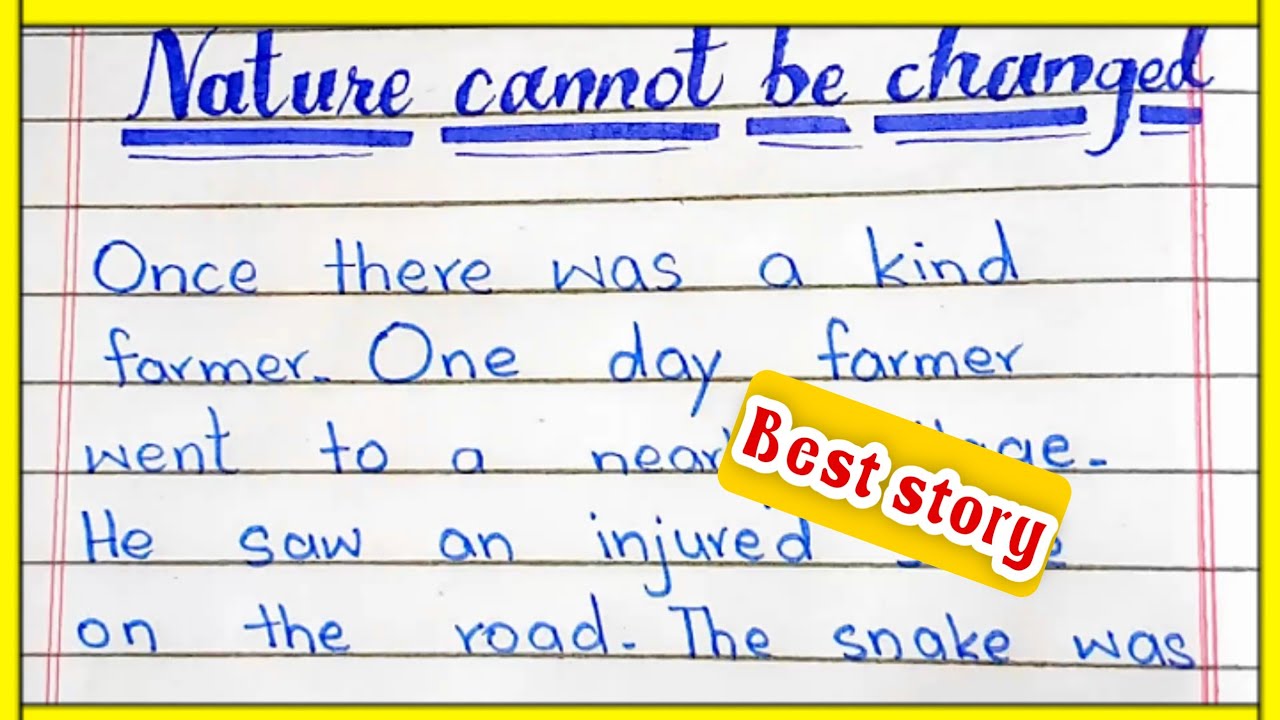 Nature cannot be changed
Once there was a kind
farmer. One day farmer
went to a near
He saw an injured
on the road. The snake was
Best story